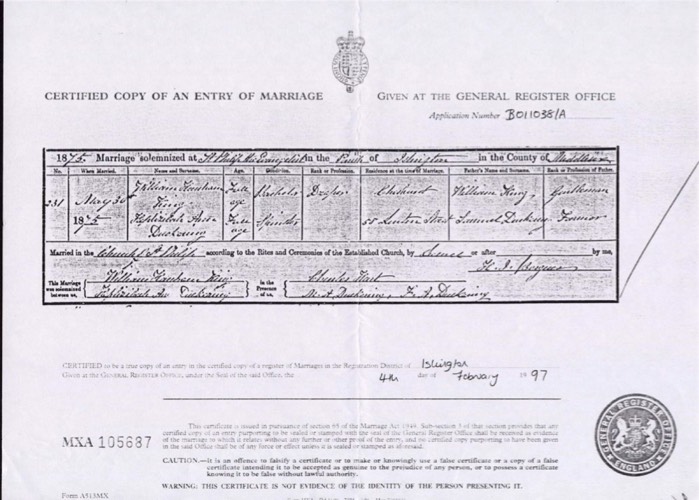 CERTIFIED COPY OF AN ENTRY OF MARRIAGE
GIVEN AT THE GENERAL REGISTER OFFICE
Application Number B011038/A
1875. Marriage solemnized at St Philip the Evangelist in the Parish of Islington in the County of Middlesex
No. When Married. Name and Surname. Age. Condition. Rank or Profession. Residence at the time of Marriage. Father's Name and Surname. Rank or Profession of Father.
231 May 30 1875 William King Full age Bachelor Draper William King Gentleman
Elizabeth Ann Duckering Full age Spinster 55 Street Samuel Duckering Farmer
Married in the Church of St Philip according to the Rites and Ceremonies of the Established Church, by Licence or after by me,
This Marriage was solemnized between us, William King
Elizabeth Ann Duckering
in the Presence of us, Charles
M. A. Duckering, Duckering
CERTIFIED to be a true copy of an entry in the certified copy of a register of Marriages in the Registration District of Islington
Given at the GENERAL REGISTER OFFICE, under the Seal of the said Office, the 4th day of February 1997
MXA 105687
This certificate is issued in pursuance of section 65 of the Marriage Act 1949. Sub-section 3 of that section provides that any
certified copy of an entry purporting to be sealed or stamped with the seal of the General Register Office shall be received as evidence
of the marriage to which it relates without any further or other proof of the entry, and no certified copy purporting to have been given
in the said Office shall be of any force or effect unless it is sealed or stamped as aforesaid.
CAUTION.—It is an offence to falsify a certificate or to make or knowingly use a false certificate or a copy of a false
certificate intending it to be accepted as genuine to the prejudice of any person, or to possess a certificate
knowing it to be false without lawful authority.
WARNING: THIS CERTIFICATE IS NOT EVIDENCE OF THE IDENTITY OF THE PERSON PRESENTING IT.
Form A513MX
GENERAL REGISTER OFFICE ENGLAND